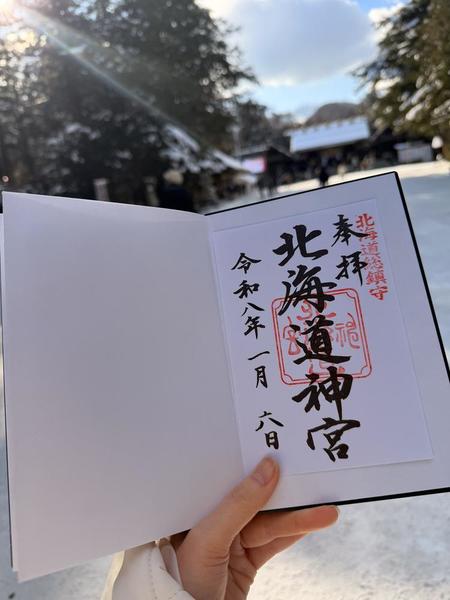 北海道総鎮守
奉拝
北海道神宮
令和八年 一月 六日